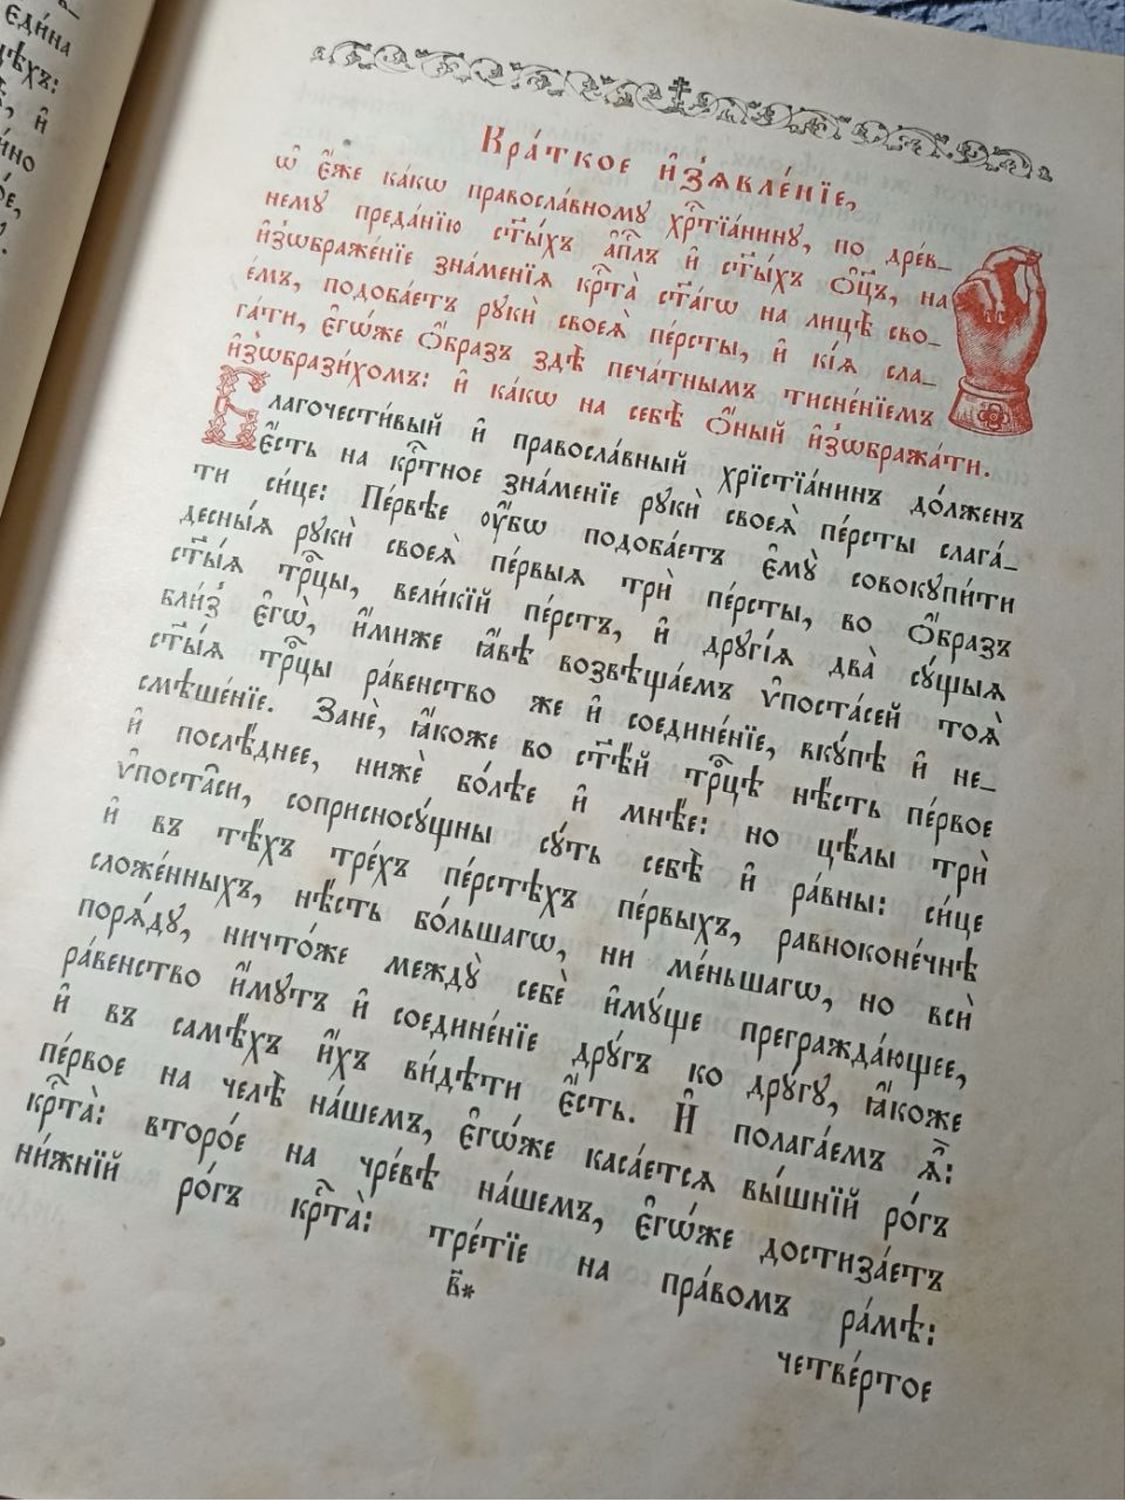 Є҆ди́на
Кра́ткое и҆з̾ѧвле́нїе,
ѡ҆ є҆́же ка́кѡ правосла́вному хрⷭ҇тїа́нину, по дре́в_
нему преда́нїю ст҃ы́хъ а҆пⷭ҇лъ и҆ ст҃ы́хъ ѻ҆ц҃ъ, на
и҆з̾ѡбраже́нїе зна́менїѧ крⷭ҇та̀ ст҃а́гѡ на лицѣ̀ сво_
е́мъ, подоба́етъ рукѝ своеѧ̀ пе́рсты, и҆ кі́ѧ сла_
га́ти, є҆гѡ́же ѻ҆́бразъ здѣ̀ печа́тнымъ тисне́нїемъ
и҆з̾ѡбрази́хомъ: и҆ ка́кѡ на себѣ̀ ѻ҆́ный и҆з̾ѡбража́ти.
Благочести́вый и҆ правосла́вный хрїстїа́нинъ до́лженъ
є҆́сть на крⷭ҇тное зна́менїе рукѝ своеѧ̀ пе́рсты слага́_
ти си́це: Пе́рвѣе ᲂу҆́бѡ подоба́етъ є҆му̀ совокупи́ти
десны́ѧ рукѝ своеѧ̀ пе́рвыѧ трѝ пе́рсты, во ѻ҆́бразъ
ст҃ы́ѧ трⷪ҇цы, вели́кїй пе́рстъ, и҆ другі́ѧ два̀ су́щыѧ
бли́з̾ є҆гѡ̀, и҆́миже ꙗ҆́вѣ возвѣща́емъ ѵ҆поста́сей тоѧ̀
ст҃ы́ѧ трⷪ҇цы ра́венство же и҆ соедине́нїе, вку́пѣ и҆ не_
смѣше́нїе. Занѐ, ꙗ҆́коже во ст҃ѣ́й трⷪ҇цѣ нѣ́сть пе́рвое
и҆ послѣ́днее, нижѐ бо́лѣе и҆ мнѣ́е: но цѣ́лы трѝ
ѵ҆поста̑си, соприсносу́щны су́ть себѣ̀ и҆ ра́вны: си́це
и҆ въ тѣ́хъ тре́хъ пе́рстѣхъ пе́рвыхъ, равноконе́чнѣ
сложе́нныхъ, нѣ́сть бо́льшагѡ, ни ме́ньшагѡ, но всѝ
порѧ́ду, ничто́же между̀ себѐ и҆му́ще прегражда́ющее,
ра́венство и҆́мутъ и҆ соедине́нїе дру́гъ ко дру́гу, ꙗ҆́коже
и҆ въ самѣ́хъ и҆́хъ ви́дѣти є҆́сть. И҆ полага́емъ ѧ҆̀:
пе́рвое на челѣ̀ на́шемъ, є҆гѡ́же каса́етсѧ вы́шнїй ро́гъ
крⷭ҇та̀: второ́е на чре́вѣ на́шемъ, є҆гѡ́же достиза́етъ
ни́жнїй ро́гъ крⷭ҇та̀: тре́тїе на пра́вомъ ра́мѣ:
в҃*
четве́ртое